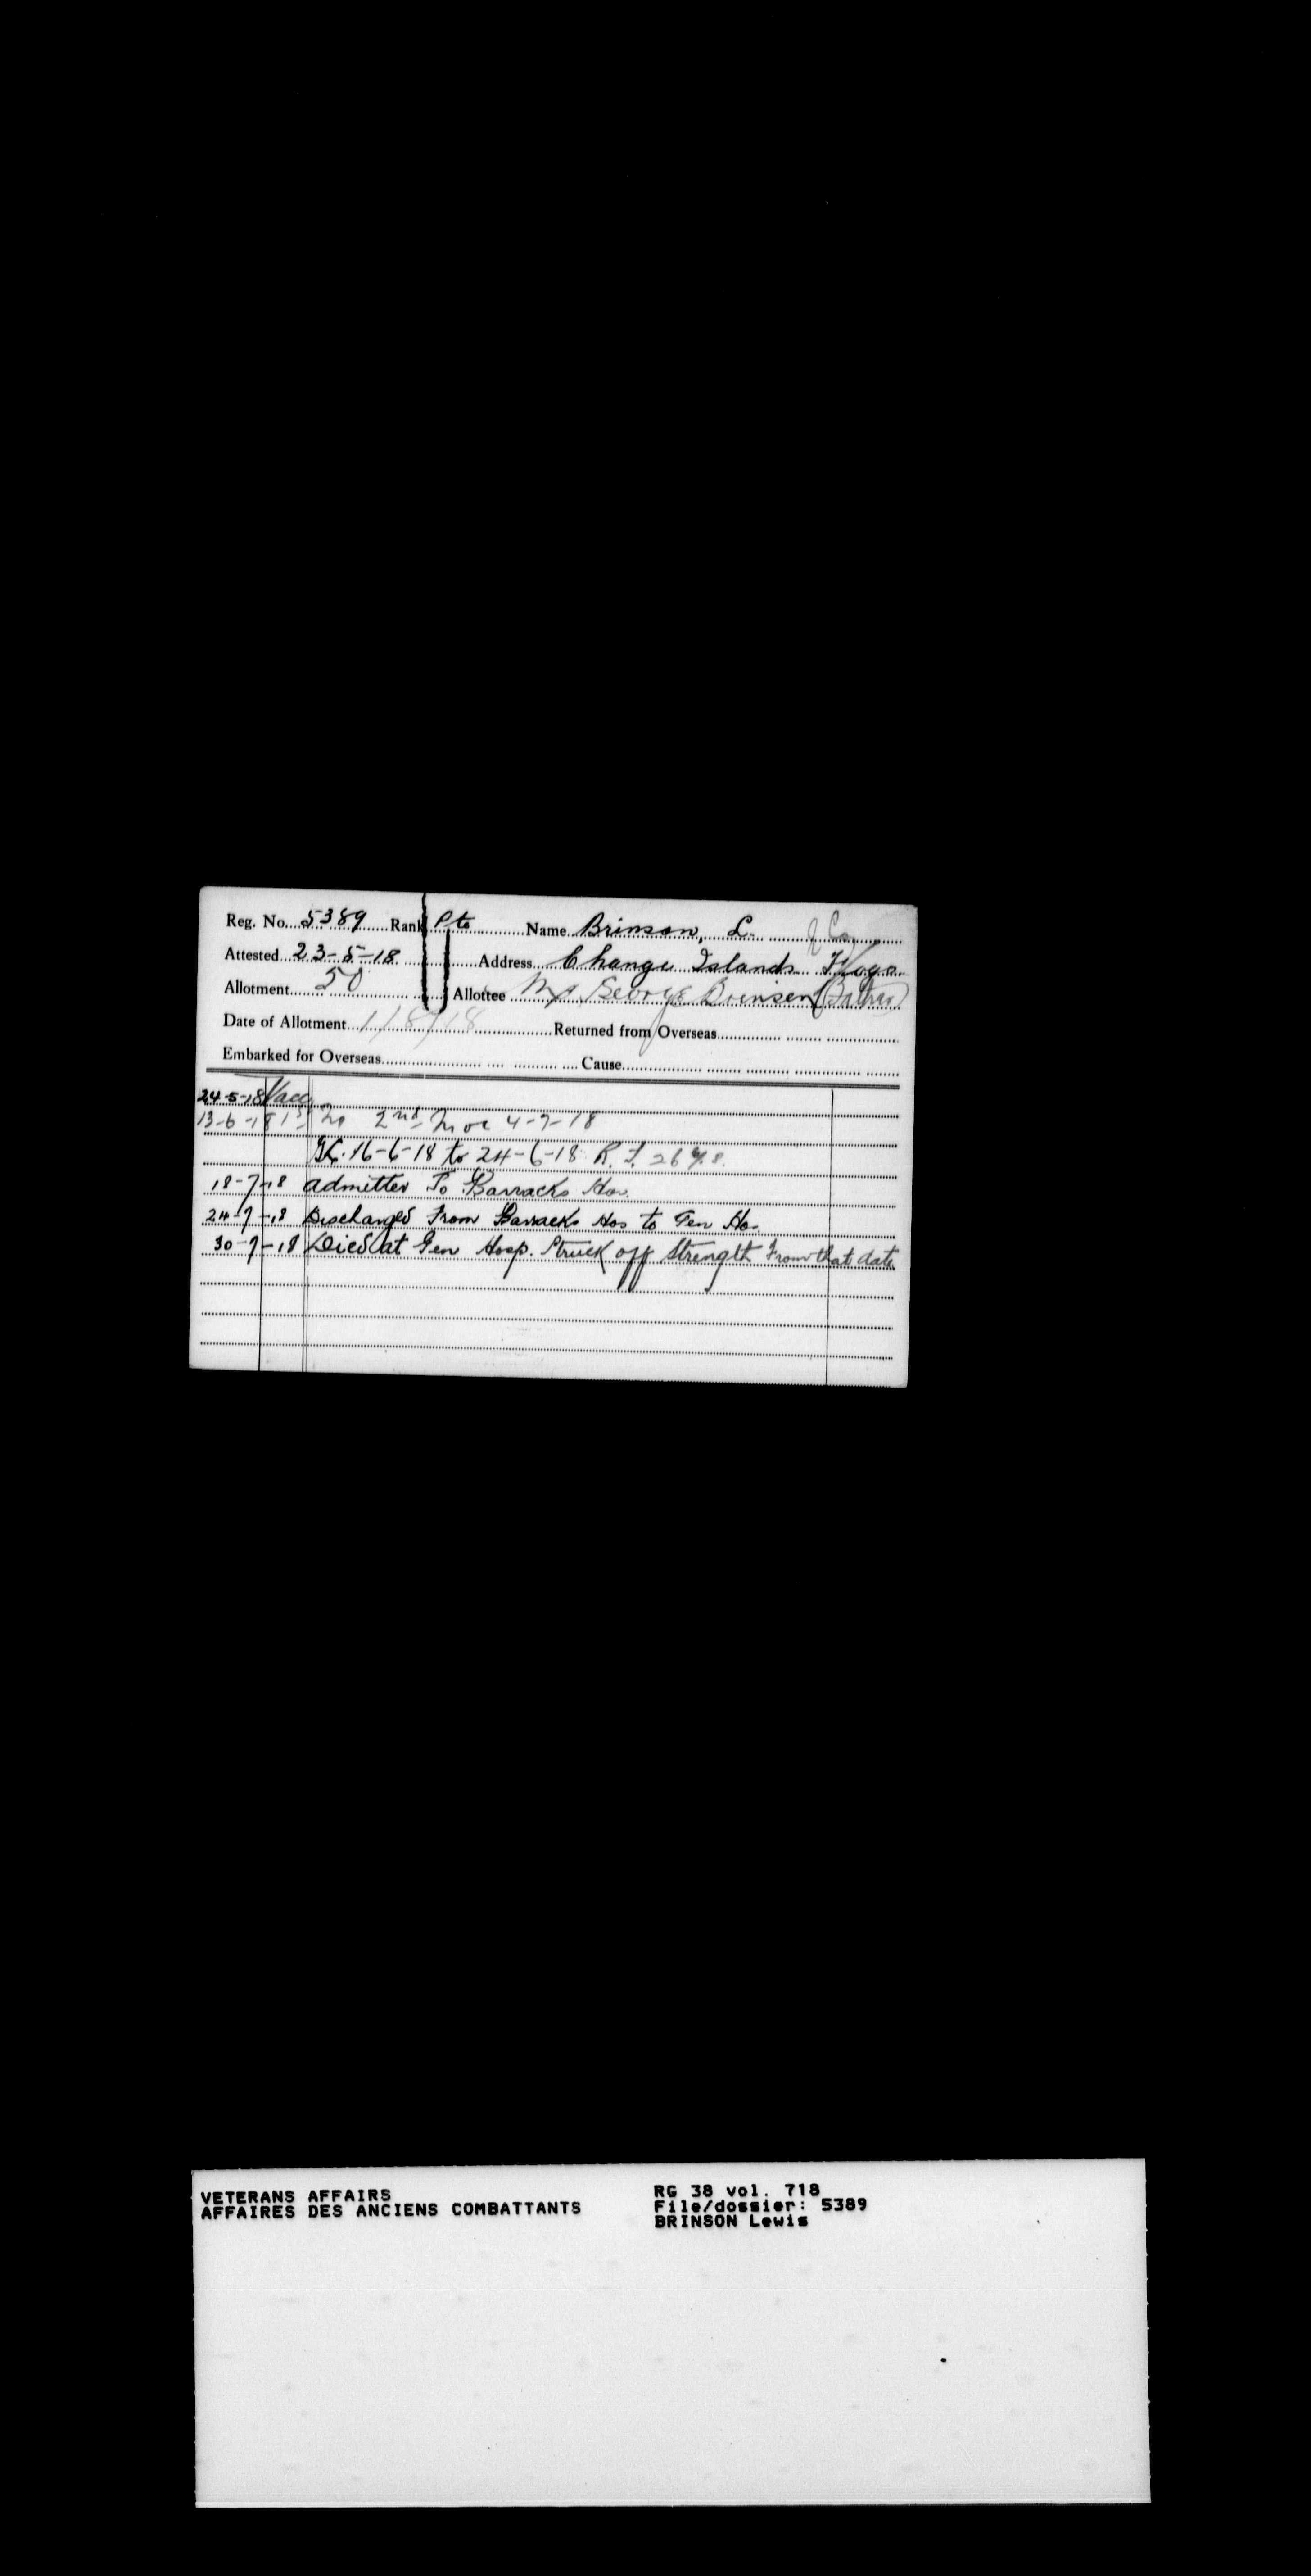 Reg. No. 5389 Rank Pte Name Brinson, L. J Co
Attested 23-5-18 Address Change Islands Fogo
Allotment 50 Allottee Mr George Brinson (Father)
Date of Allotment 1/8/18 Returned from Overseas
Embarked for Overseas Cause
24-5-18 Vacc
13-6-18 1st In 2nd Inoc 4-7-18
16-6-18 to 24-6-18
18-7-18 admitted To Barracks Hos.
24-7-18 Discharged From Barracks Hos to Gen Hos.
30-7-18 Died at Gen Hosp. Struck off Strength From that date
VETERANS AFFAIRS
AFFAIRES DES ANCIENS COMBATTANTS
RG 38 vol. 718
File/dossier: 5389
BRINSON Lewis